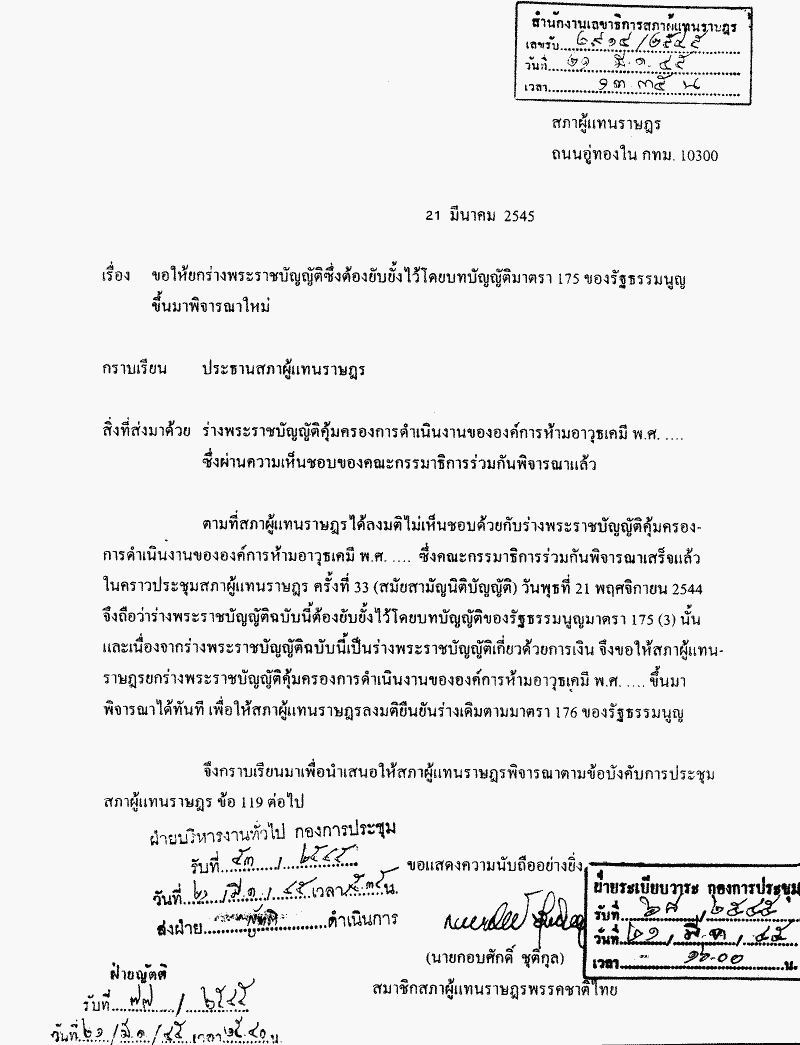 สำนักงานเลขาธิการสภาผู้แทนราษฎร
เลขรับ ๒๙๑๔/๒๕๔๕
วันที่ ๒๑ มี.ค. ๔๕
เวลา ๑๓.๓๕ น
สภาผู้แทนราษฎร
ถนนอู่ทองใน กทม. 10300
21 มีนาคม 2545
เรื่อง ขอให้ยกร่างพระราชบัญญัติซึ่งต้องยับยั้งไว้โดยบทบัญญัติมาตรา 175 ของรัฐธรรมนูญ
ขึ้นมาพิจารณาใหม่
กราบเรียน ประธานสภาผู้แทนราษฎร
สิ่งที่ส่งมาด้วย ร่างพระราชบัญญัติคุ้มครองการดำเนินงานขององค์การห้ามอาวุธเคมี พ.ศ. ....
ซึ่งผ่านความเห็นชอบของคณะกรรมาธิการร่วมกันพิจารณาแล้ว
ตามที่สภาผู้แทนราษฎรได้ลงมติไม่เห็นชอบด้วยกับร่างพระราชบัญญัติคุ้มครอง-
การดำเนินงานขององค์การห้ามอาวุธเคมี พ.ศ. .... ซึ่งคณะกรรมาธิการร่วมกันพิจารณาเสร็จแล้ว
ในคราวประชุมสภาผู้แทนราษฎร ครั้งที่ 33 (สมัยสามัญนิติบัญญัติ) วันพุธที่ 21 พฤศจิกายน 2544
จึงถือว่าร่างพระราชบัญญัติฉบับนี้ต้องยับยั้งไว้โดยบทบัญญัติของรัฐธรรมนูญมาตรา 175 (3) นั้น
และเนื่องจากร่างพระราชบัญญัติฉบับนี้เป็นร่างพระราชบัญญัติเกี่ยวด้วยการเงิน จึงขอให้สภาผู้แทน-
ราษฎรยกร่างพระราชบัญญัติคุ้มครองการดำเนินงานขององค์การห้ามอาวุธเคมี พ.ศ. .... ขึ้นมา
พิจารณาได้ทันที เพื่อให้สภาผู้แทนราษฎรลงมติยืนยันร่างเดิมตามมาตรา 176 ของรัฐธรรมนูญ
จึงกราบเรียนมาเพื่อนำเสนอให้สภาผู้แทนราษฎรพิจารณาตามข้อบังคับการประชุม
สภาผู้แทนราษฎร ข้อ 119 ต่อไป
ฝ่ายบริหารงานทั่วไป กองการประชุม
รับที่ ๕๓ / ๒๕๔๕
วันที่ ๒๑ / มี.ค. / ๔๕ เวลา น.
ส่งฝ่าย ญัตติ ดำเนินการ
ขอแสดงความนับถืออย่างยิ่ง
(นายกอบศักดิ์ ชุติกุล)
สมาชิกสภาผู้แทนราษฎรพรรคชาติไทย
ฝ่ายระเบียบวาระ กองการประชุม
รับที่ ๖๘ / ๒๕๔๕
วันที่ ๒๑ / มี.ค / ๔๕
เวลา ๑๖.๐๐ น.
ฝ่ายญัตติ
รับที่ ๗๗ / ๒๕๔๕
วันที่ ๒๑ / มี.ค. / ๔๕ เวลา ๑๕.๔๐ น.